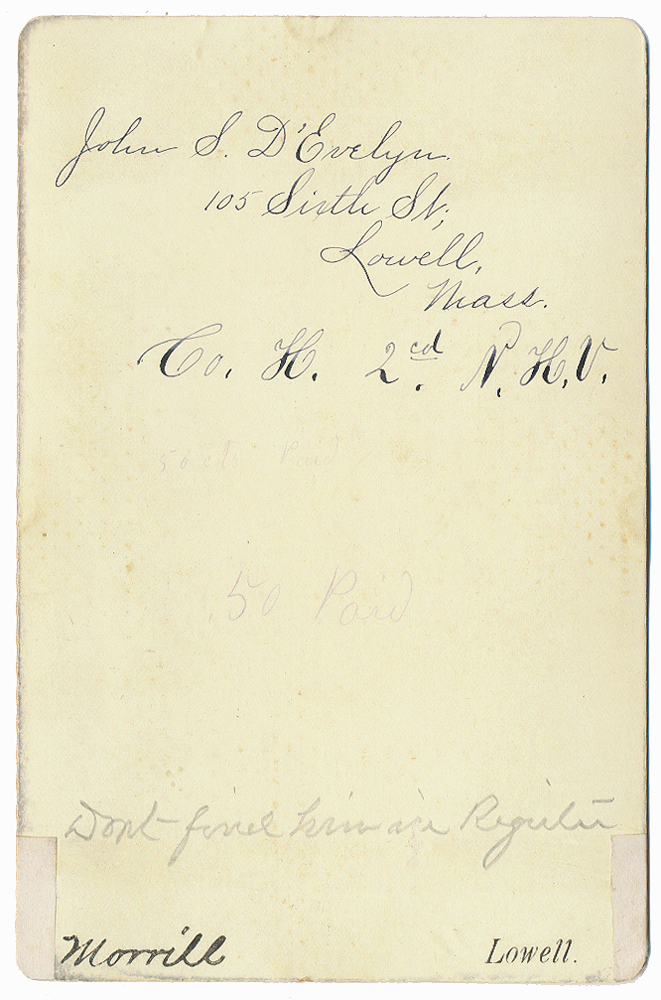 John S. D'Evelyn.
105 Sixth St,
Lowell,
Mass.
Co. H. 2.cd N.H.V.
50 cts Paid
.50 Paid
Dont find him in Register
Morrill Lowell.